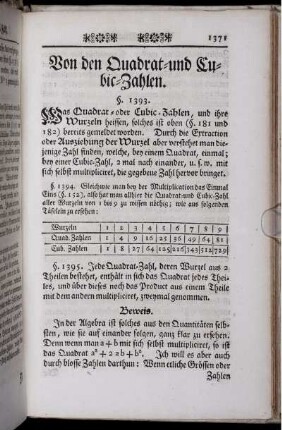 1371
Von den Quadrat-und Cu-
bic-Zahlen.
§. 1393.
Was Quadrat- oder Cubic-Zahlen, und ihre
Wurzeln heissen, solches ist oben (§. 181 und
182) bereits gemeldet worden. Durch die Extraction
oder Ausziehung der Wurzel aber verstehet man die-
jenige Zahl finden, welche, bey einem Quadrat, einmal;
bey einer Cubic-Zahl, 2 mal nach einander, u. s. w. mit
sich selbst multipliciret, die gegebene Zahl hervor bringet.
§. 1394. Gleichwie man bey der Multiplication das Einmal
Eins (§. 152), also hat man allhier die Quadrat-und Cubic-Zahl
aller Wurzeln von 1 bis 9 zu wissen nöthig; wie aus folgenden
Täfelein zu ersehen:
Wurzeln 1 2 3 4 5 6 7 8 9
Quad. Zahlen 1 4 9 16 25 36 49 64 81
Cub. Zahlen 1 8 27 64 125 216 343 512 729
§. 1395. Jede Quadrat-Zahl, deren Wurzel aus 2
Theilen bestehet, enthält in sich das Quadrat jedes Thei-
les, und über dieses noch das Product aus einem Theile
mit dem andern multipliciret, zweymal genommen.
Beweis.
In der Algebra ist solches aus den Quantitäten selb-
sten, wie sie auf einander folgen, ganz klar zu ersehen.
Denn wenn man a + b mit sich selbst multipliciret, so ist
das Quadrat a² + 2 ab + b². Ich will es aber auch
durch blosse Zahlen darthun: Wenn etliche Grössen oder
Zahlen